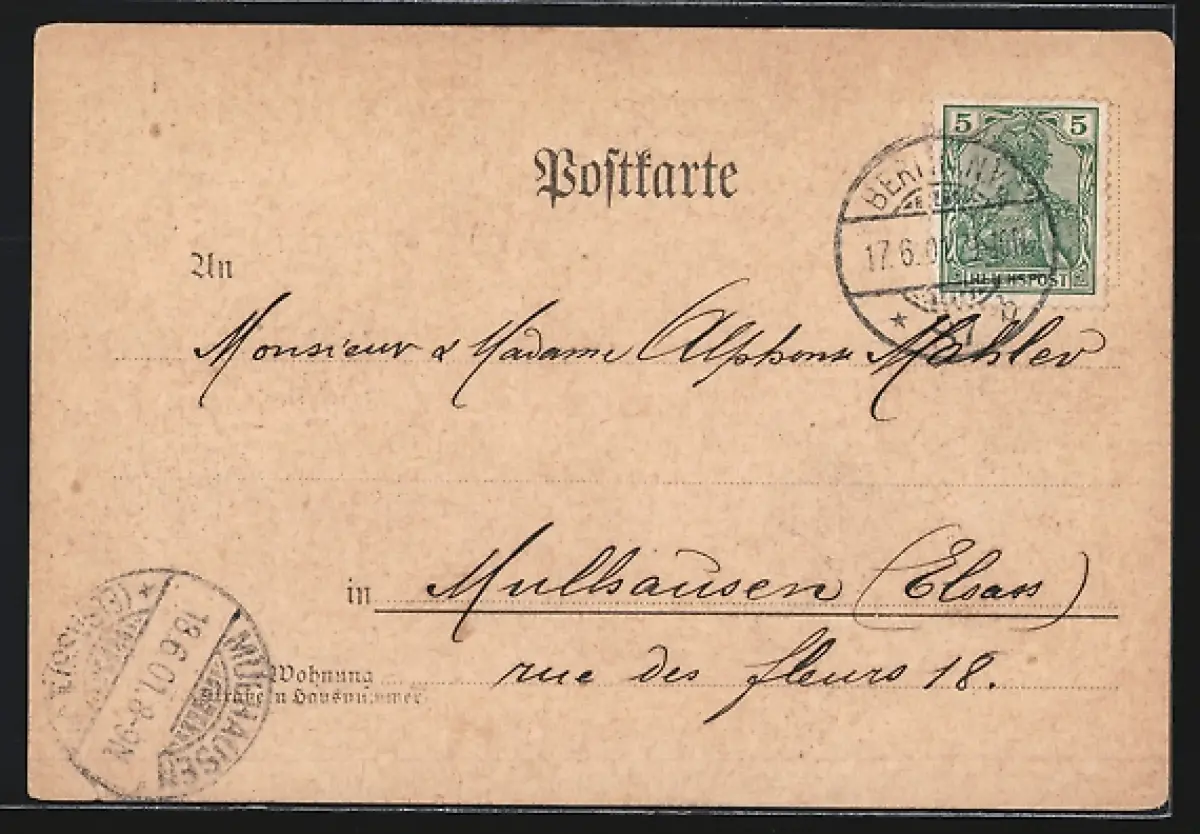 5 5
Postkarte
BERLIN N.W.
17.6.01
REICHSPOST
An
Monsieur & Madame Alphonse Mahler
in Mulhausen (Elsass)
Wohnung
Straße u Hausnummer
rue des fleurs 18.
MÜLHAUSEN (ELSASS)
18.6.01. 8-9N